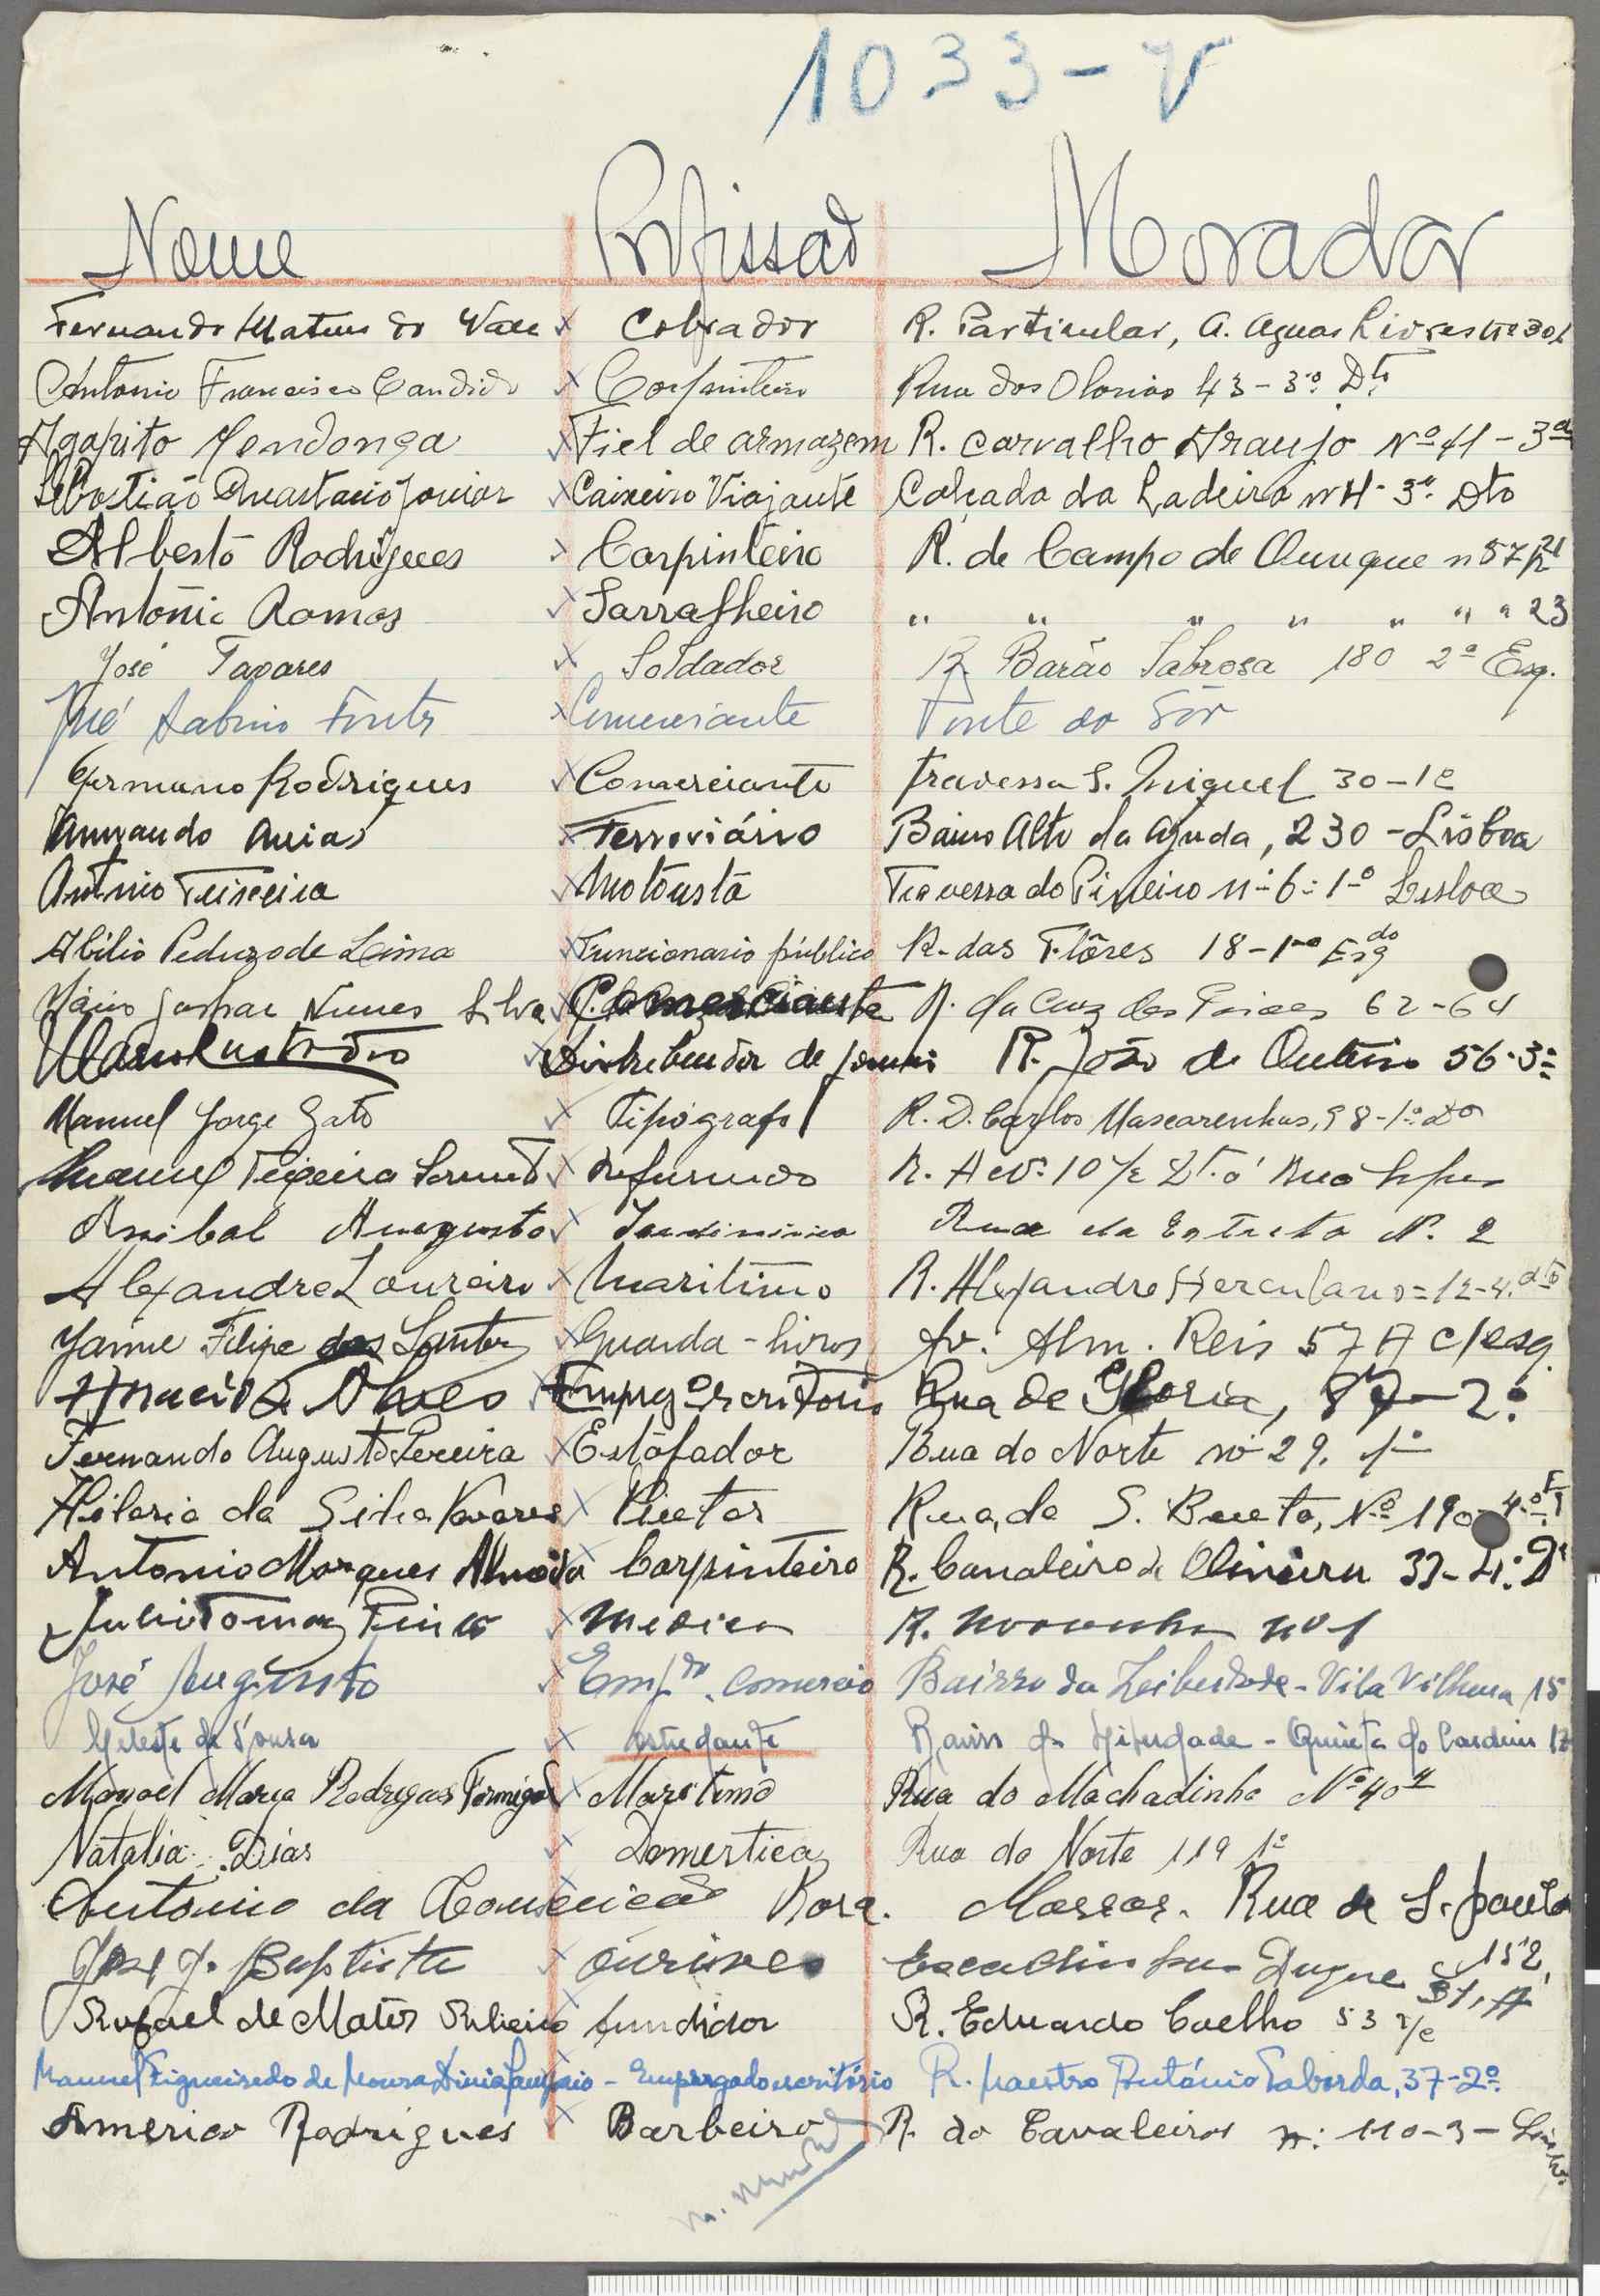 1033-V
Nome Profissão Morador
Fernando Mateus do Vale Cobrador R. Particular, A. Aguas Livres nº 301
António Francisco Candido Carpinteiro Rua dos Olarias 43-3º Dtº
Agapito Mendonça Fiel de armazem R. Carvalho Araujo Nº 41-3º
Sebastião Anastacio Junior Caixeiro Viajante Calçada da Ladeira nº 4-3º Dto
Alberto Rodrigues Carpinteiro R. de Campo de Ourique n 57
António Ramos Sarralheiro " " " " " " " 23
José Tavares Soldador R. Barão Sabrosa 180 2º Esq.
José Sabino Fontes Comerciante Ponte do Sôr
Germano Rodrigues Comerciante Travessa S. Miguel 30-1º
Armando Avias Ferroviário Bairro Alto da Ajuda, 230-Lisboa
António Teixeira Motorista Travessa do Pinheiro nº 6-1º Lisboa
Abilio Pedrozo de Lima Funcionario público R. das Flôres 18-1º Esqdo
Mário Gaspar Nunes Silva Comerciante R. da Cruz dos Poiaes 62-64
Distribuidor de jornais R. João do Outeiro 56-3º
Manuel Jorge Gato Tipógrafo R. D. Carlos Mascarenhas, 98-1º Do
Manuel Teixeira Reformado R. A nº 10
Anibal Augusto Rua da Nº. 2
Alexandre Loureiro Maritimo R. Alexandre Herculano=12-4.dto
Jaime Filipe dos Santos Guarda-livros Av. Alm. Reis 57 A c/esq.
Horacio Alves Empregº escritorio Rua de Gloria, 87-2º
Fernando Augusto Pereira Estofador Rua do Norte nº 29, 1º
Hilario da Silva Tavares Pintor Rua, de S. Bento, Nº 190-4º
Antonio Marques Almeida Carpinteiro R. Cavaleiro de Oliveira 33-4º D
Julio Tomaz Pinto Medico R. Noronha nº 1
José Augusto Empdo. Comercio Bairro da Liberdade-Vila Vilhena 15
Celeste de Sousa estudante Bairro da Liberdade-Quinta do Cardeiro 12
Manoel Maria Rodrigues Formigal Maritimo Rua do Machadinho Nº 40
Natalia Dias Domestica Rua do Norte 119 1º
Antonio da Conceição Rosa. Rua de S. paulo
José J. Baptista ourives Escadinhas Duque 152,
Rafael de Matos Ribeiro fundidor R. Eduardo Coelho 53 r/c 31, A
Manuel Figueiredo de Moura - Empregado escritório R. Maestro António Taborda, 37-2º
Americo Rodrigues Barbeiro R. do Cavaleiros nº: 110-3-